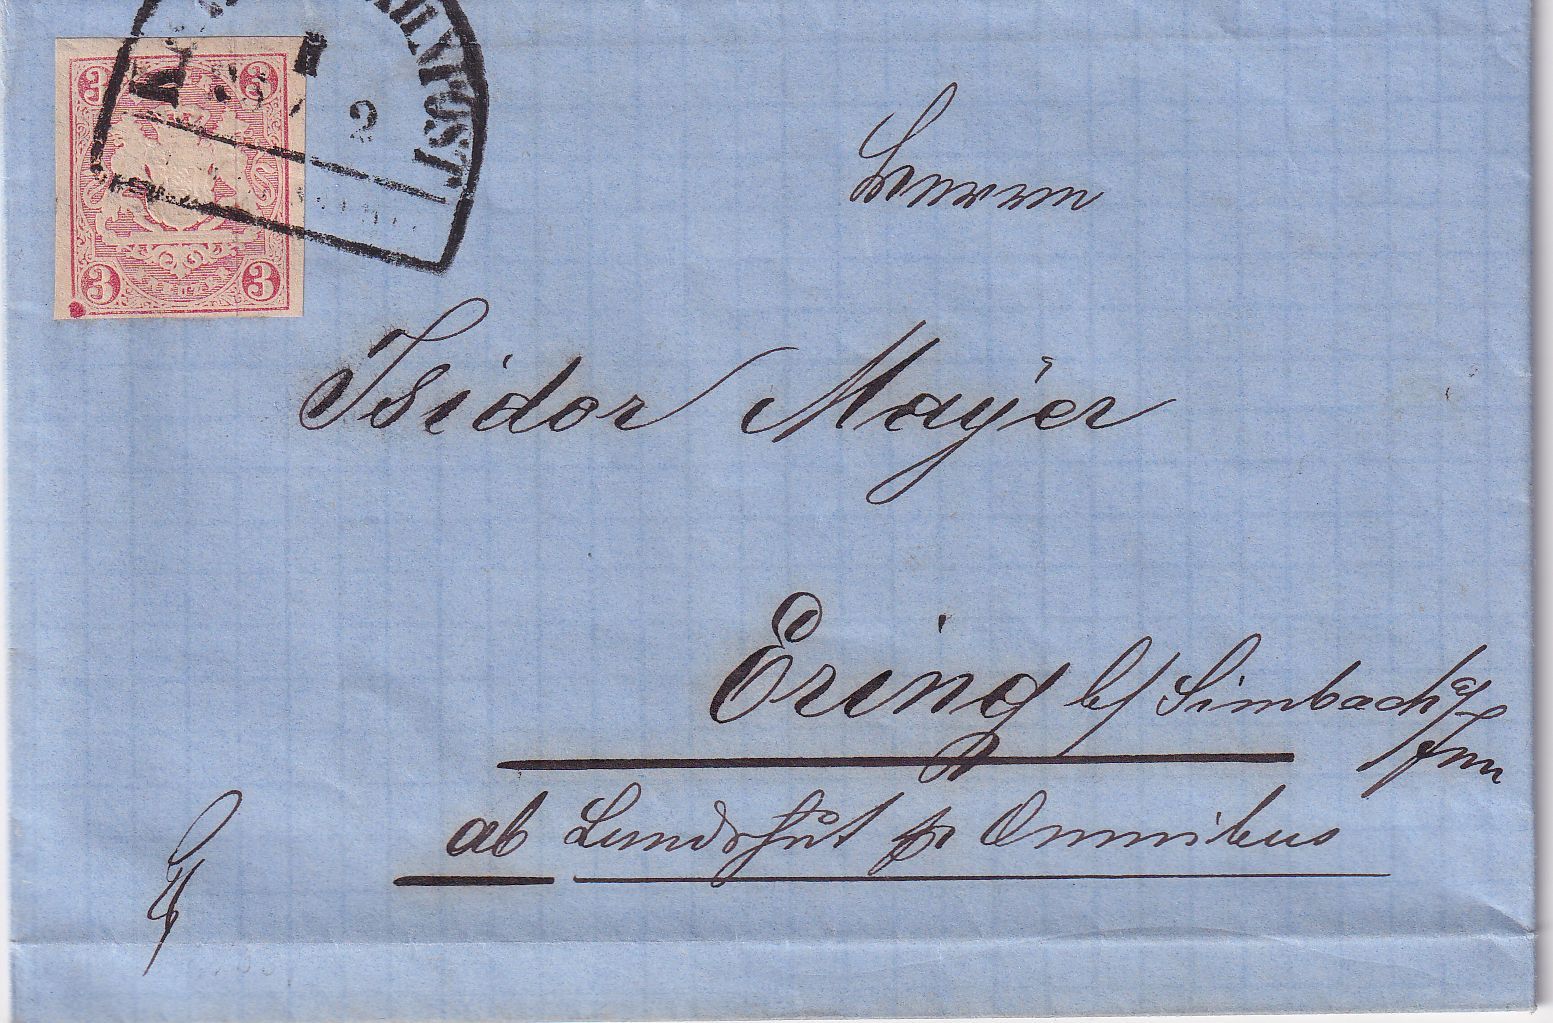 3 3
3 3
2
Herrn
Isidor Mayer
Ering b/ Simbach a/
Inn
ab Landshut pr Omnibus